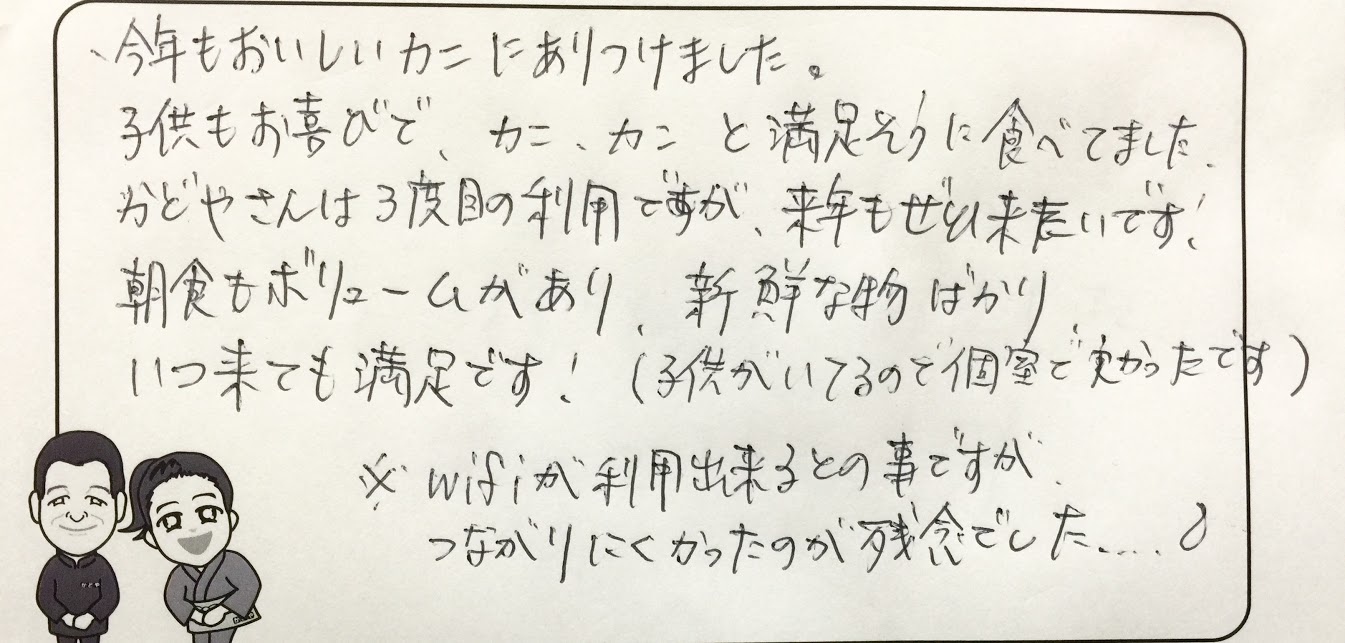 今年もおいしいカニにありつけました。
子供もお喜びで、カニ、カニと満足そうに食べてました。
かどやさんは3度目の利用ですが、来年もぜひ来たいです!
朝食もボリュームがあり、新鮮な物ばかり
いつ来ても満足です!(子供がいてるので個室で良かったです)
※wifiが利用出来るとの事ですが、
つながりにくかったのが残念でした....。